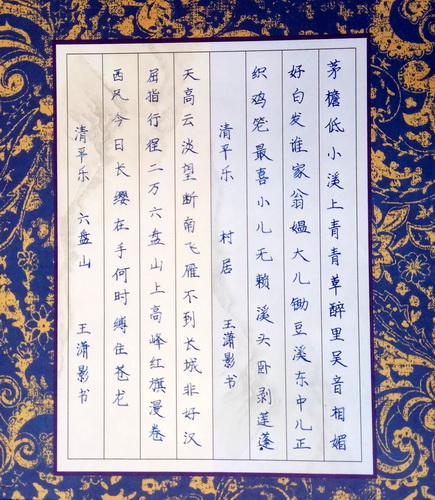 茅檐低小溪上青青草醉里吴音相媚
好白发谁家翁媪大儿锄豆溪东中儿正
织鸡笼最喜小儿无赖溪头卧剥莲蓬
清平乐 村居 王潇影书
天高云淡望断南飞雁不到长城非好汉
屈指行程二万六盘山上高峰红旗漫卷
西风今日长缨在手何时缚住苍龙
清平乐 六盘山 王潇影书